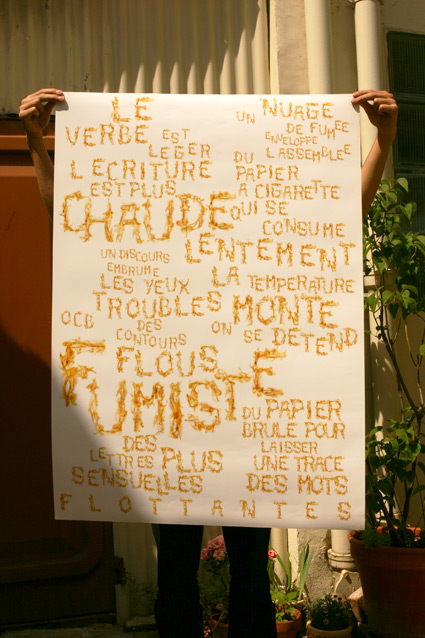 LE
VERBE EST
LEGER
LECRITURE
EST PLUS
CHAUDE
UN DISCOURS
EMBRUME
LES YEUX
TROUBLES
OCB DES
CONTOURS
FLOUS
FUMISTE
DES
LETTRES PLUS
SENSUELLES
UN NUAGE
DE FUMEE
ENVELOPPE
LASSEMBLEE
DU PAPIER
A CIGARETTE
QUI SE
CONSUME
LENTEMENT
LA TEMPERATURE
MONTE
ON SE DETEND
DU PAPIER
BRULE POUR
LAISSER
UNE TRACE
DES MOTS
FLOTTANTES